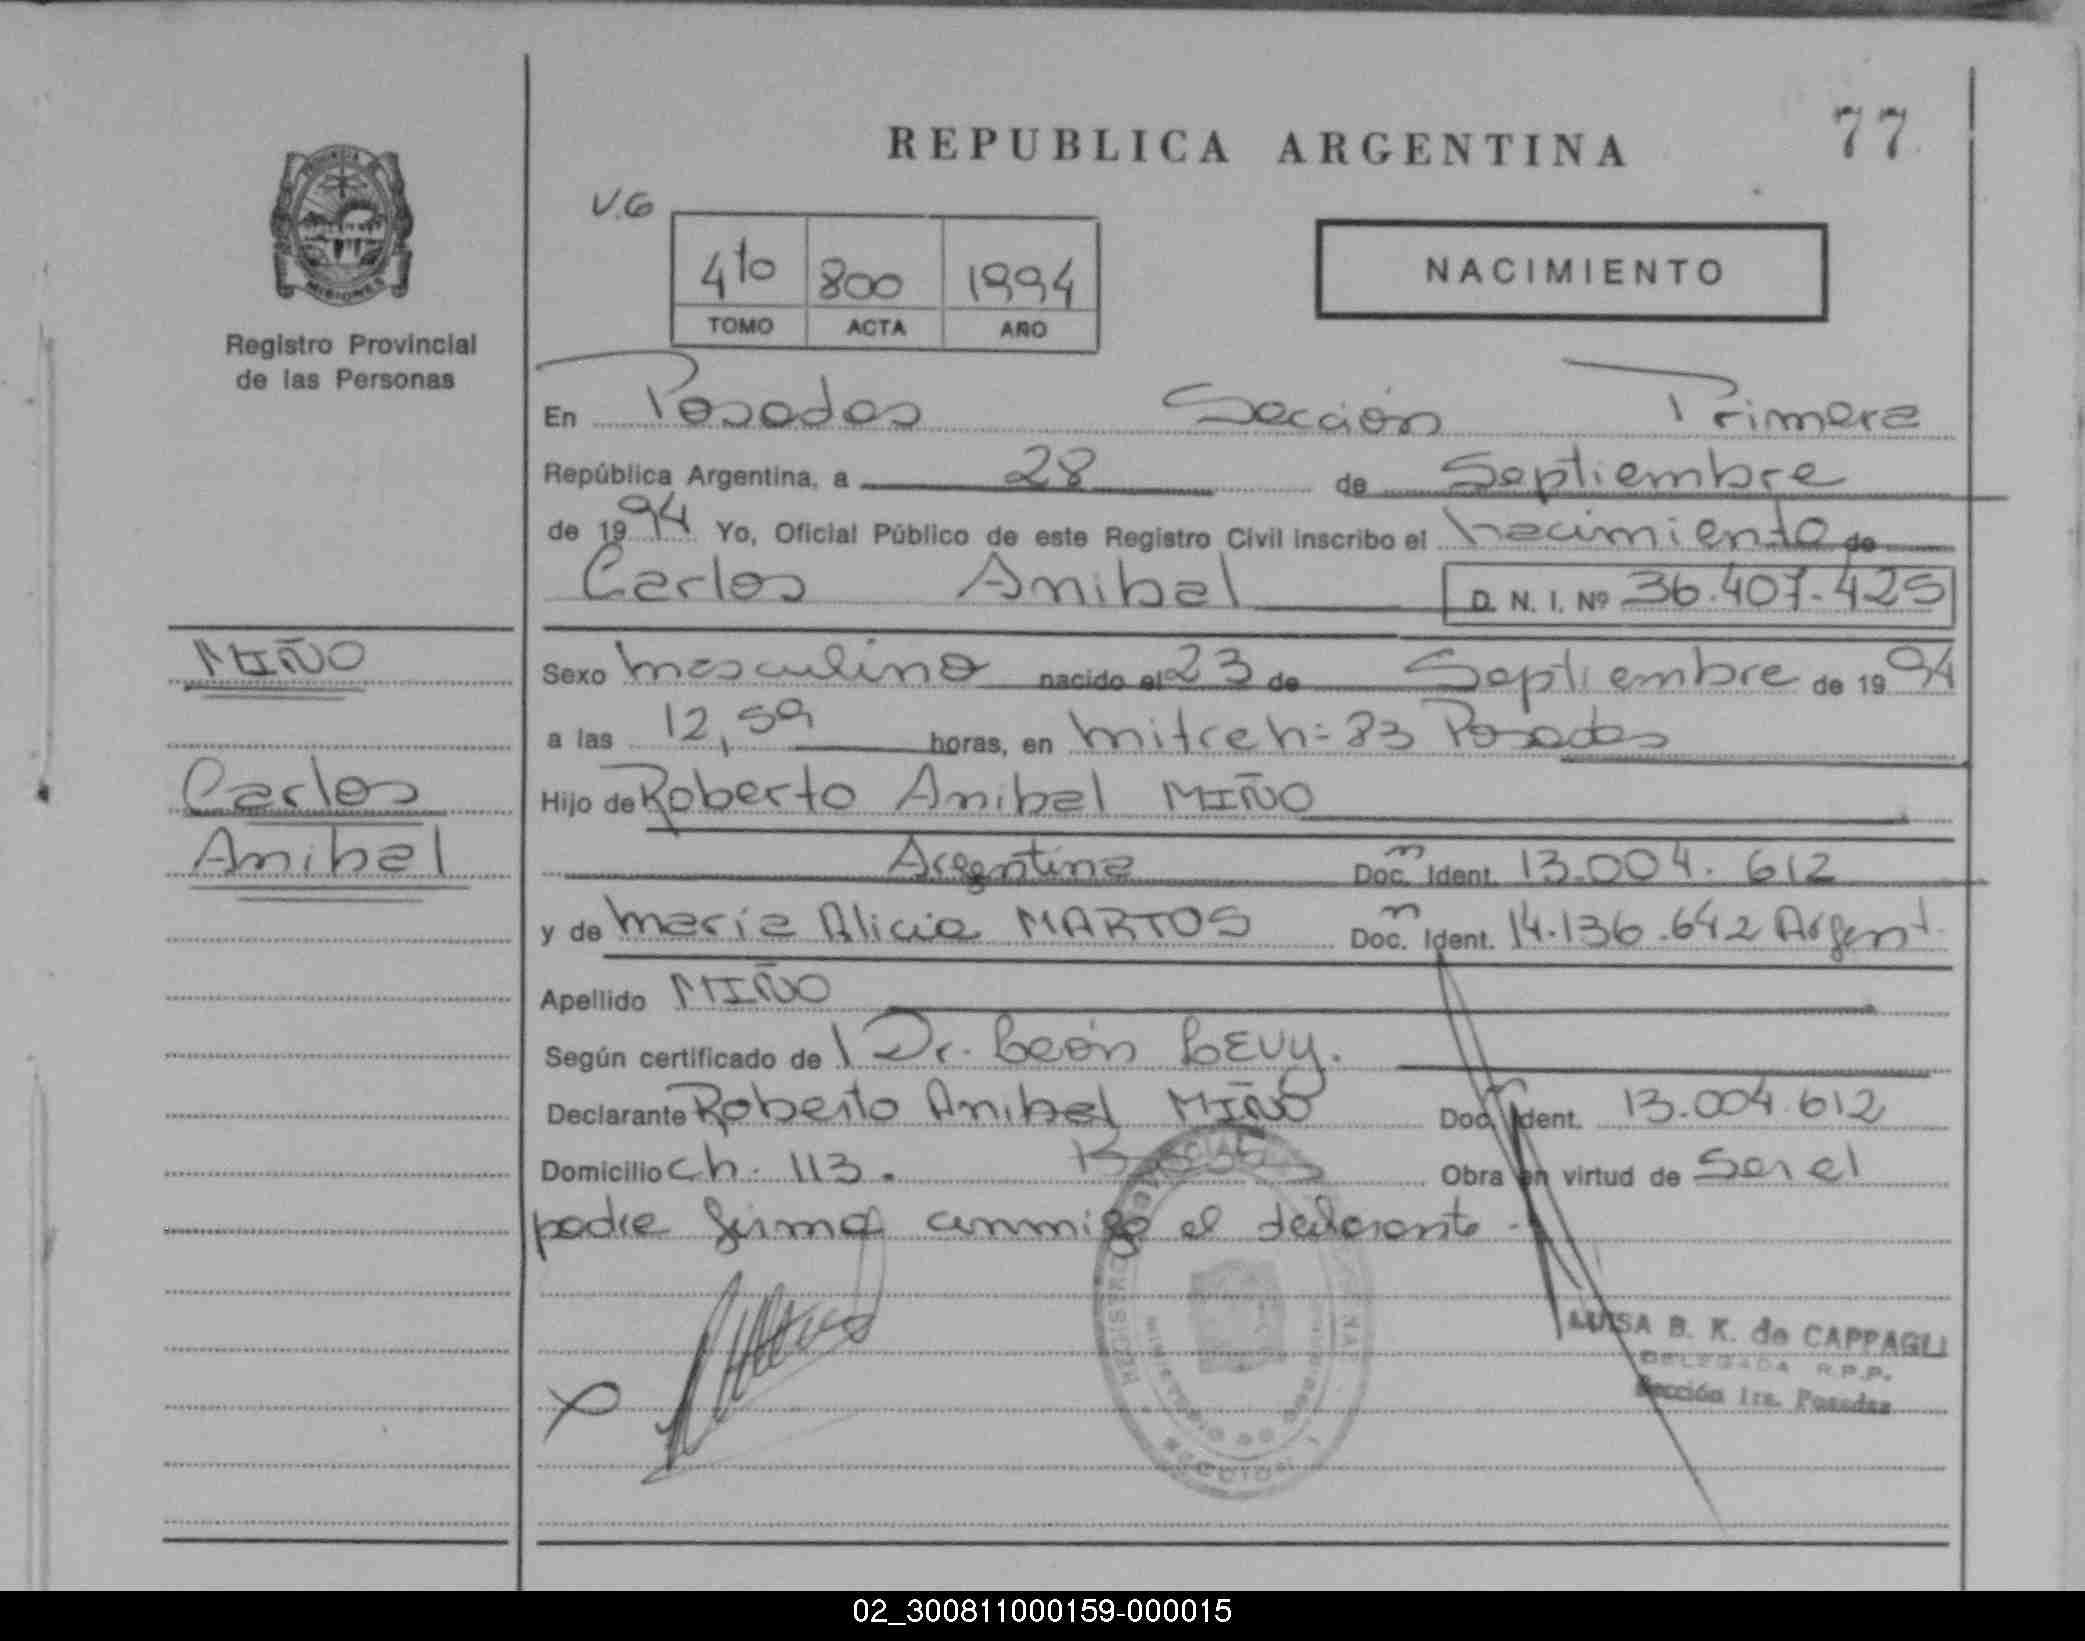 REPUBLICA ARGENTINA
77
V.G
4to 800 1994
TOMO ACTA AÑO
NACIMIENTO
MISIONES
Registro Provincial
de las Personas
En Posadas Sección Primera
República Argentina, a 28 de Septiembre
de 1994 Yo, Oficial Público de este Registro Civil inscribo el nacimiento de
Carlos Anibal D. N. I. Nº 36.407.425
MIÑO
Carlos
Anibal
Sexo masculino nacido el 23 de Septiembre de 1994
a las 12,59 horas, en mitre n= 83 Posadas
Hijo de Roberto Anibal MIÑO
Argentina Doc. Ident. 13.004.612
y de María Alicia MARTOS Doc. Ident. 14.136.642 Argent.
Apellido MIÑO
Según certificado de Dr. León LEVY.
Declarante Roberto Anibal MIÑO Doc. Ident. 13.004.612
Domicilio Ch. 113. Obra en virtud de Ser el
padre firma conmigo el declarante
LUISA B. K. de CAPPAGLI
DELEGADA R.P.P.
Sección 1ra. Posadas
02_300811000159-000015